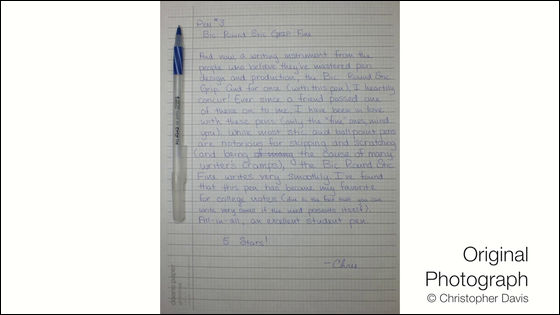 Pen #3
Bic Round Stic Grip Fine
And now a writing instrument from the
people who believe they've mastered pen
design and production, the Bic Round Stic
Grip. And for once (with this pen), I heartily
concur! Ever since a friend passed one
of these on to me, I have been in love
with these pens (only the "fine" ones, mind
you). While most stic and ballpoint pens
are notorious for skipping and scratching
(and being of many the cause of many
writer's cramps), the Bic Round Stic
Fine writes very smoothly. I've found
that this pen has became my favorite
for college notes (due to the fact that you can
write very small if the need presents itself).
All-in-all, an excellent student pen.
5 Stars!
-Chris
doane paper
Original
Photograph
© Christopher Davis